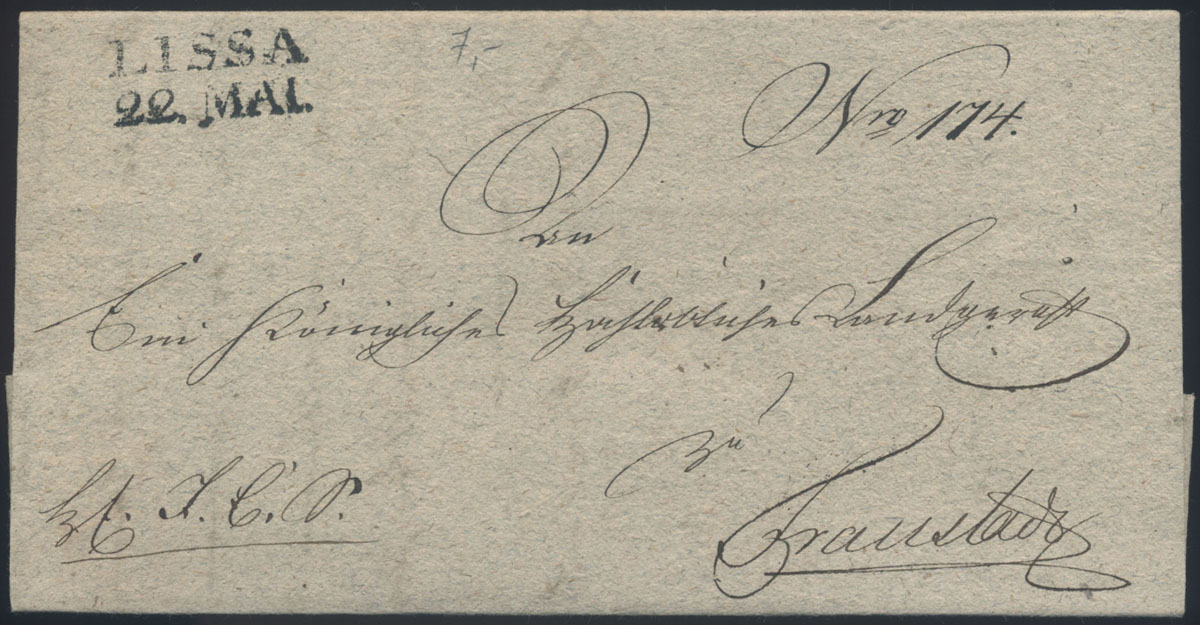 LISSA
22. MAI.
7,-
Nro 174.
An
Ein Königliches Hochlöbliches Landgericht
zu
Fraustadt
J. C. S.